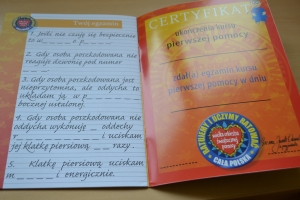 Twój egzamin
1. Jeśli nie czuję się bezpiecznie
to w_____ o p___
2. Gdy osoba poszkodowana nie
reaguje dzwonię pod numer
3. Gdy osoba poszkodowana jest
nieprzytomna, ale oddycha to
układam ją w p_____
bocznej ustalonej.
4. Gdy osoba poszkodowana nie
oddycha wykonuję _ oddechy
i uciskam
jej klatkę piersiową __ razy.
5. Klatkę piersiową uciskam
m_____ i energicznie.
CERTYFIKAT
ukończenia kursu
pierwszej pomocy
zdał(a) egzamin kursu
pierwszej pomocy w dniu
RATUJEMY I UCZYMY RATOWAĆ
CAŁA POLSKA